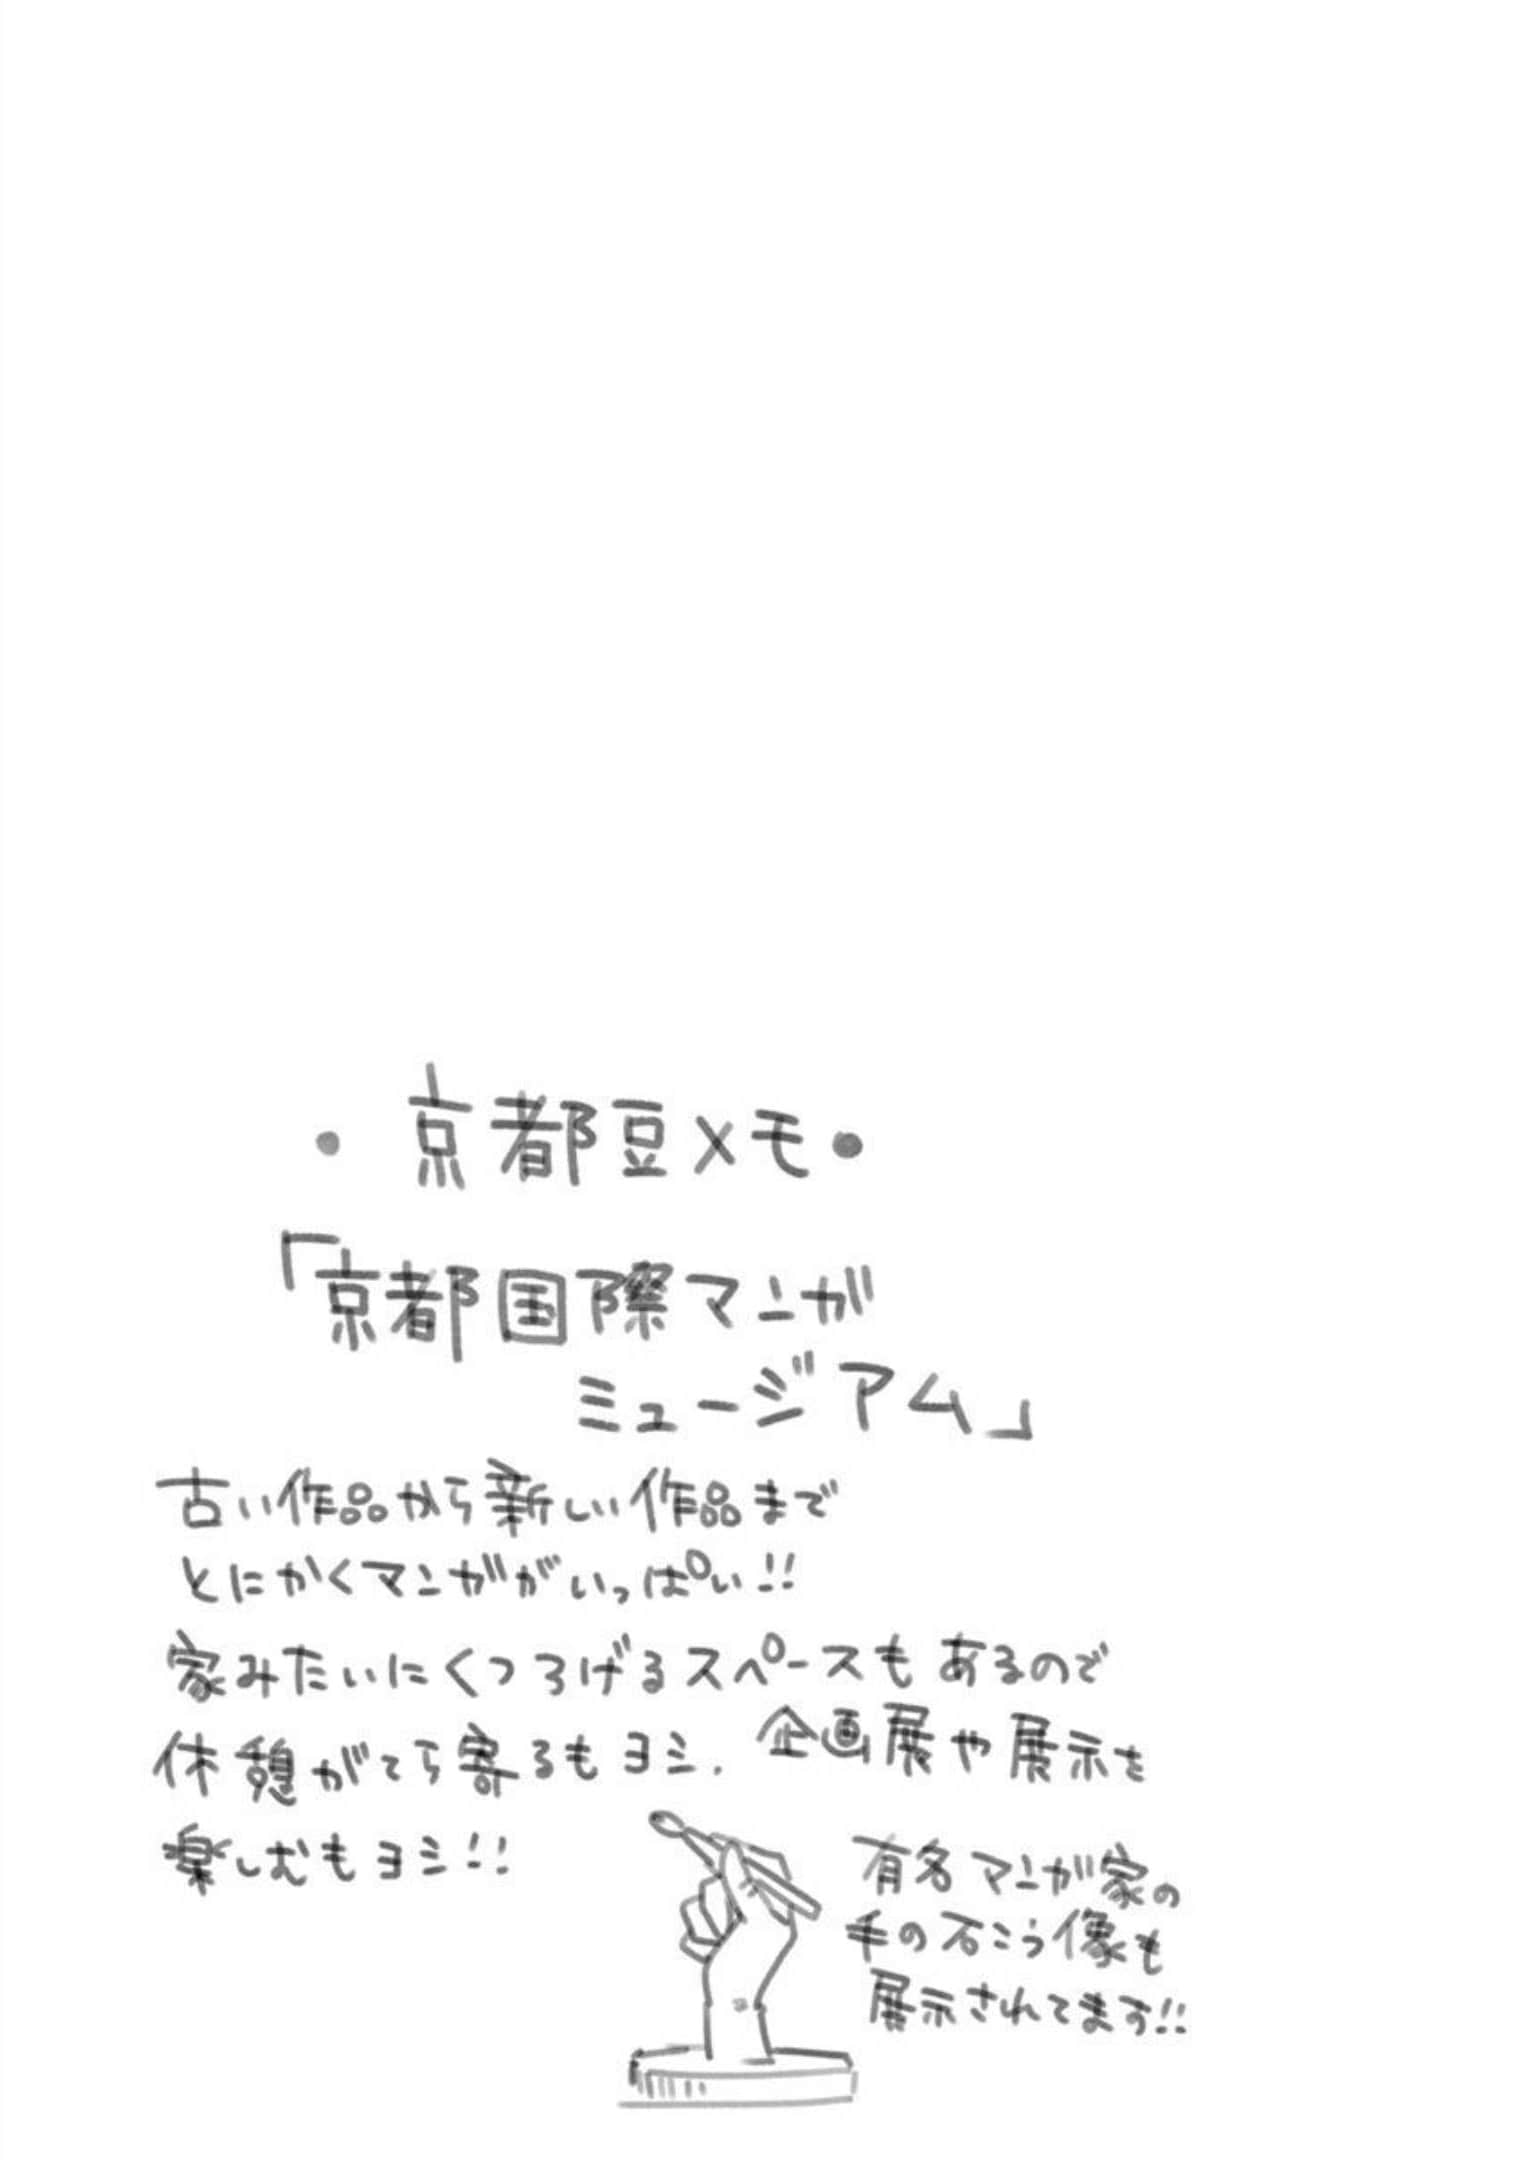 ・京都豆メモ・
「京都国際マンガ
ミュージアム」
古い作品から新しい作品まで
とにかくマンガがいっぱい!!
家みたいにくつろげるスペースもあるので
休憩がてら寄るもヨシ.企画展や展示を
楽しむもヨシ!!
有名マンガ家の
手の石こう像も
展示されてます!!